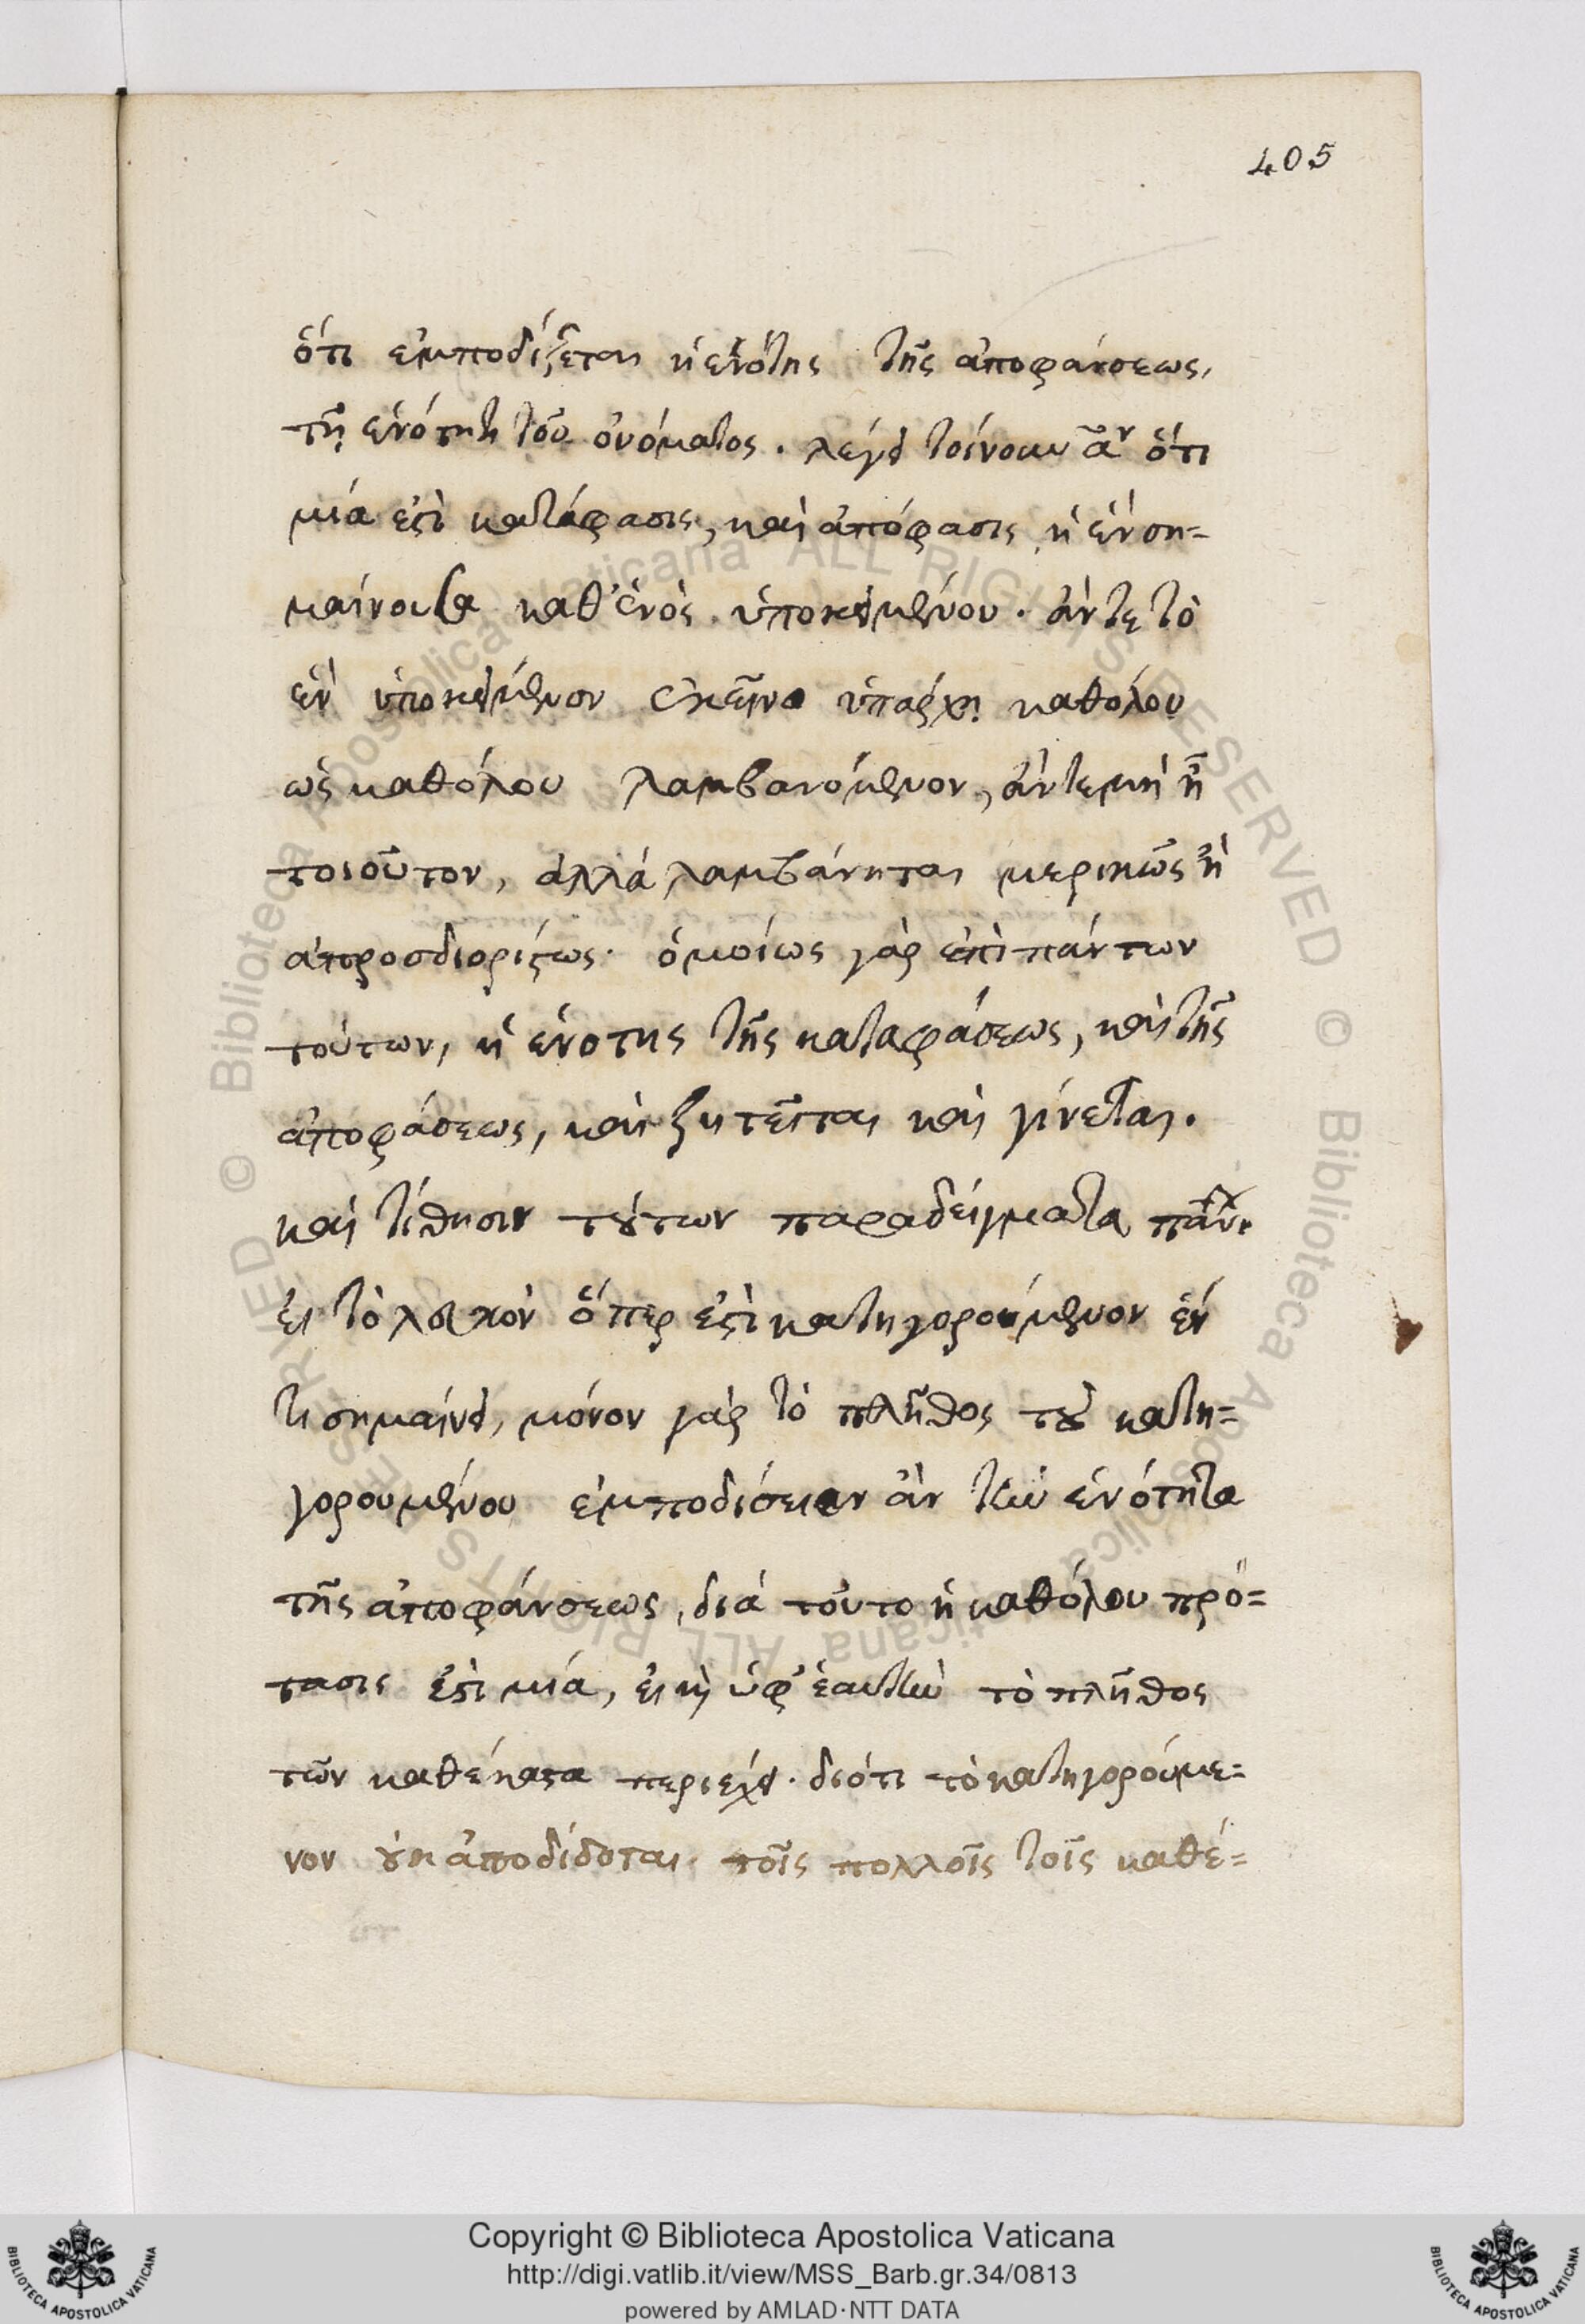 405
ὅτι ἐμποδίζεται ἡ ἑνότης τῆς ἀποφάνσεως,
τῇ ἑνότητι τοῦ ὀνόματος. λέγει τοίνυν αον ὅτι
μία ἐστὶ κατάφασις, καὶ ἀπόφασις ἡ ἓν ση=
μαίνουσα καθ' ἑνὸς ὑποκειμένου. ἄντε τὸ
ἓν ὑποκείμενον ἐκεῖνο ὑπάρχῃ καθόλου
ὡς καθόλου λαμβανόμενον, ἄντε μὴ ᾖ
τοιοῦτον, ἀλλὰ λαμβάνηται μερικῶς ἢ
ἀπροσδιορίστως. ὁμοίως γὰρ ἐπὶ πάντων
τούτων, ἡ ἑνότης τῆς καταφάσεως, καὶ τῆς
ἀποφάσεως, καὶ ζητεῖται καὶ γίνεται.
καὶ τίθησιν τούτων παραδείγματα
εἰ τὸ λευκὸν ὅπερ ἐστὶ κατηγορούμενον ἕν
τι σημαίνει, μόνον γὰρ τὸ πλῆθος τοῦ κατη=
γορουμένου ἐμποδίσειεν ἂν τὴν ἑνότητα
τῆς ἀποφάνσεως, διὰ τοῦτο ἡ καθόλου πρό=
τασις ἐστὶ μία, εἰ καὶ ὑφ' ἑαυτὴν τὸ πλῆθος
τῶν καθέκαστα περιέχει. διότι τὸ κατηγορούμε=
νον οὐκ ἀποδίδοται τοῖς πολλοῖς τοῖς καθέ=
Copyright © Biblioteca Apostolica Vaticana
http://digi.vatlib.it/view/MSS_Barb.gr.34/0813
powered by AMLAD·NTT DATA